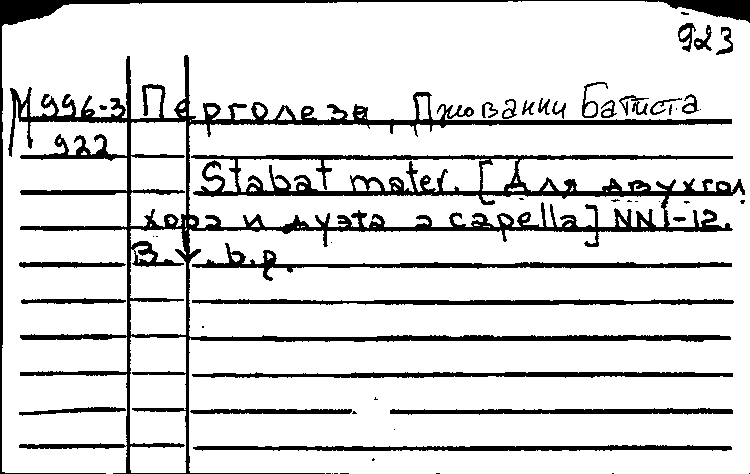 923
М 996-3 Перголезе, Джованни Батиста
922
Stabat mater. [Для двухгол.
хора и дуэта a capella] NN 1-12.
B. v. b. p.